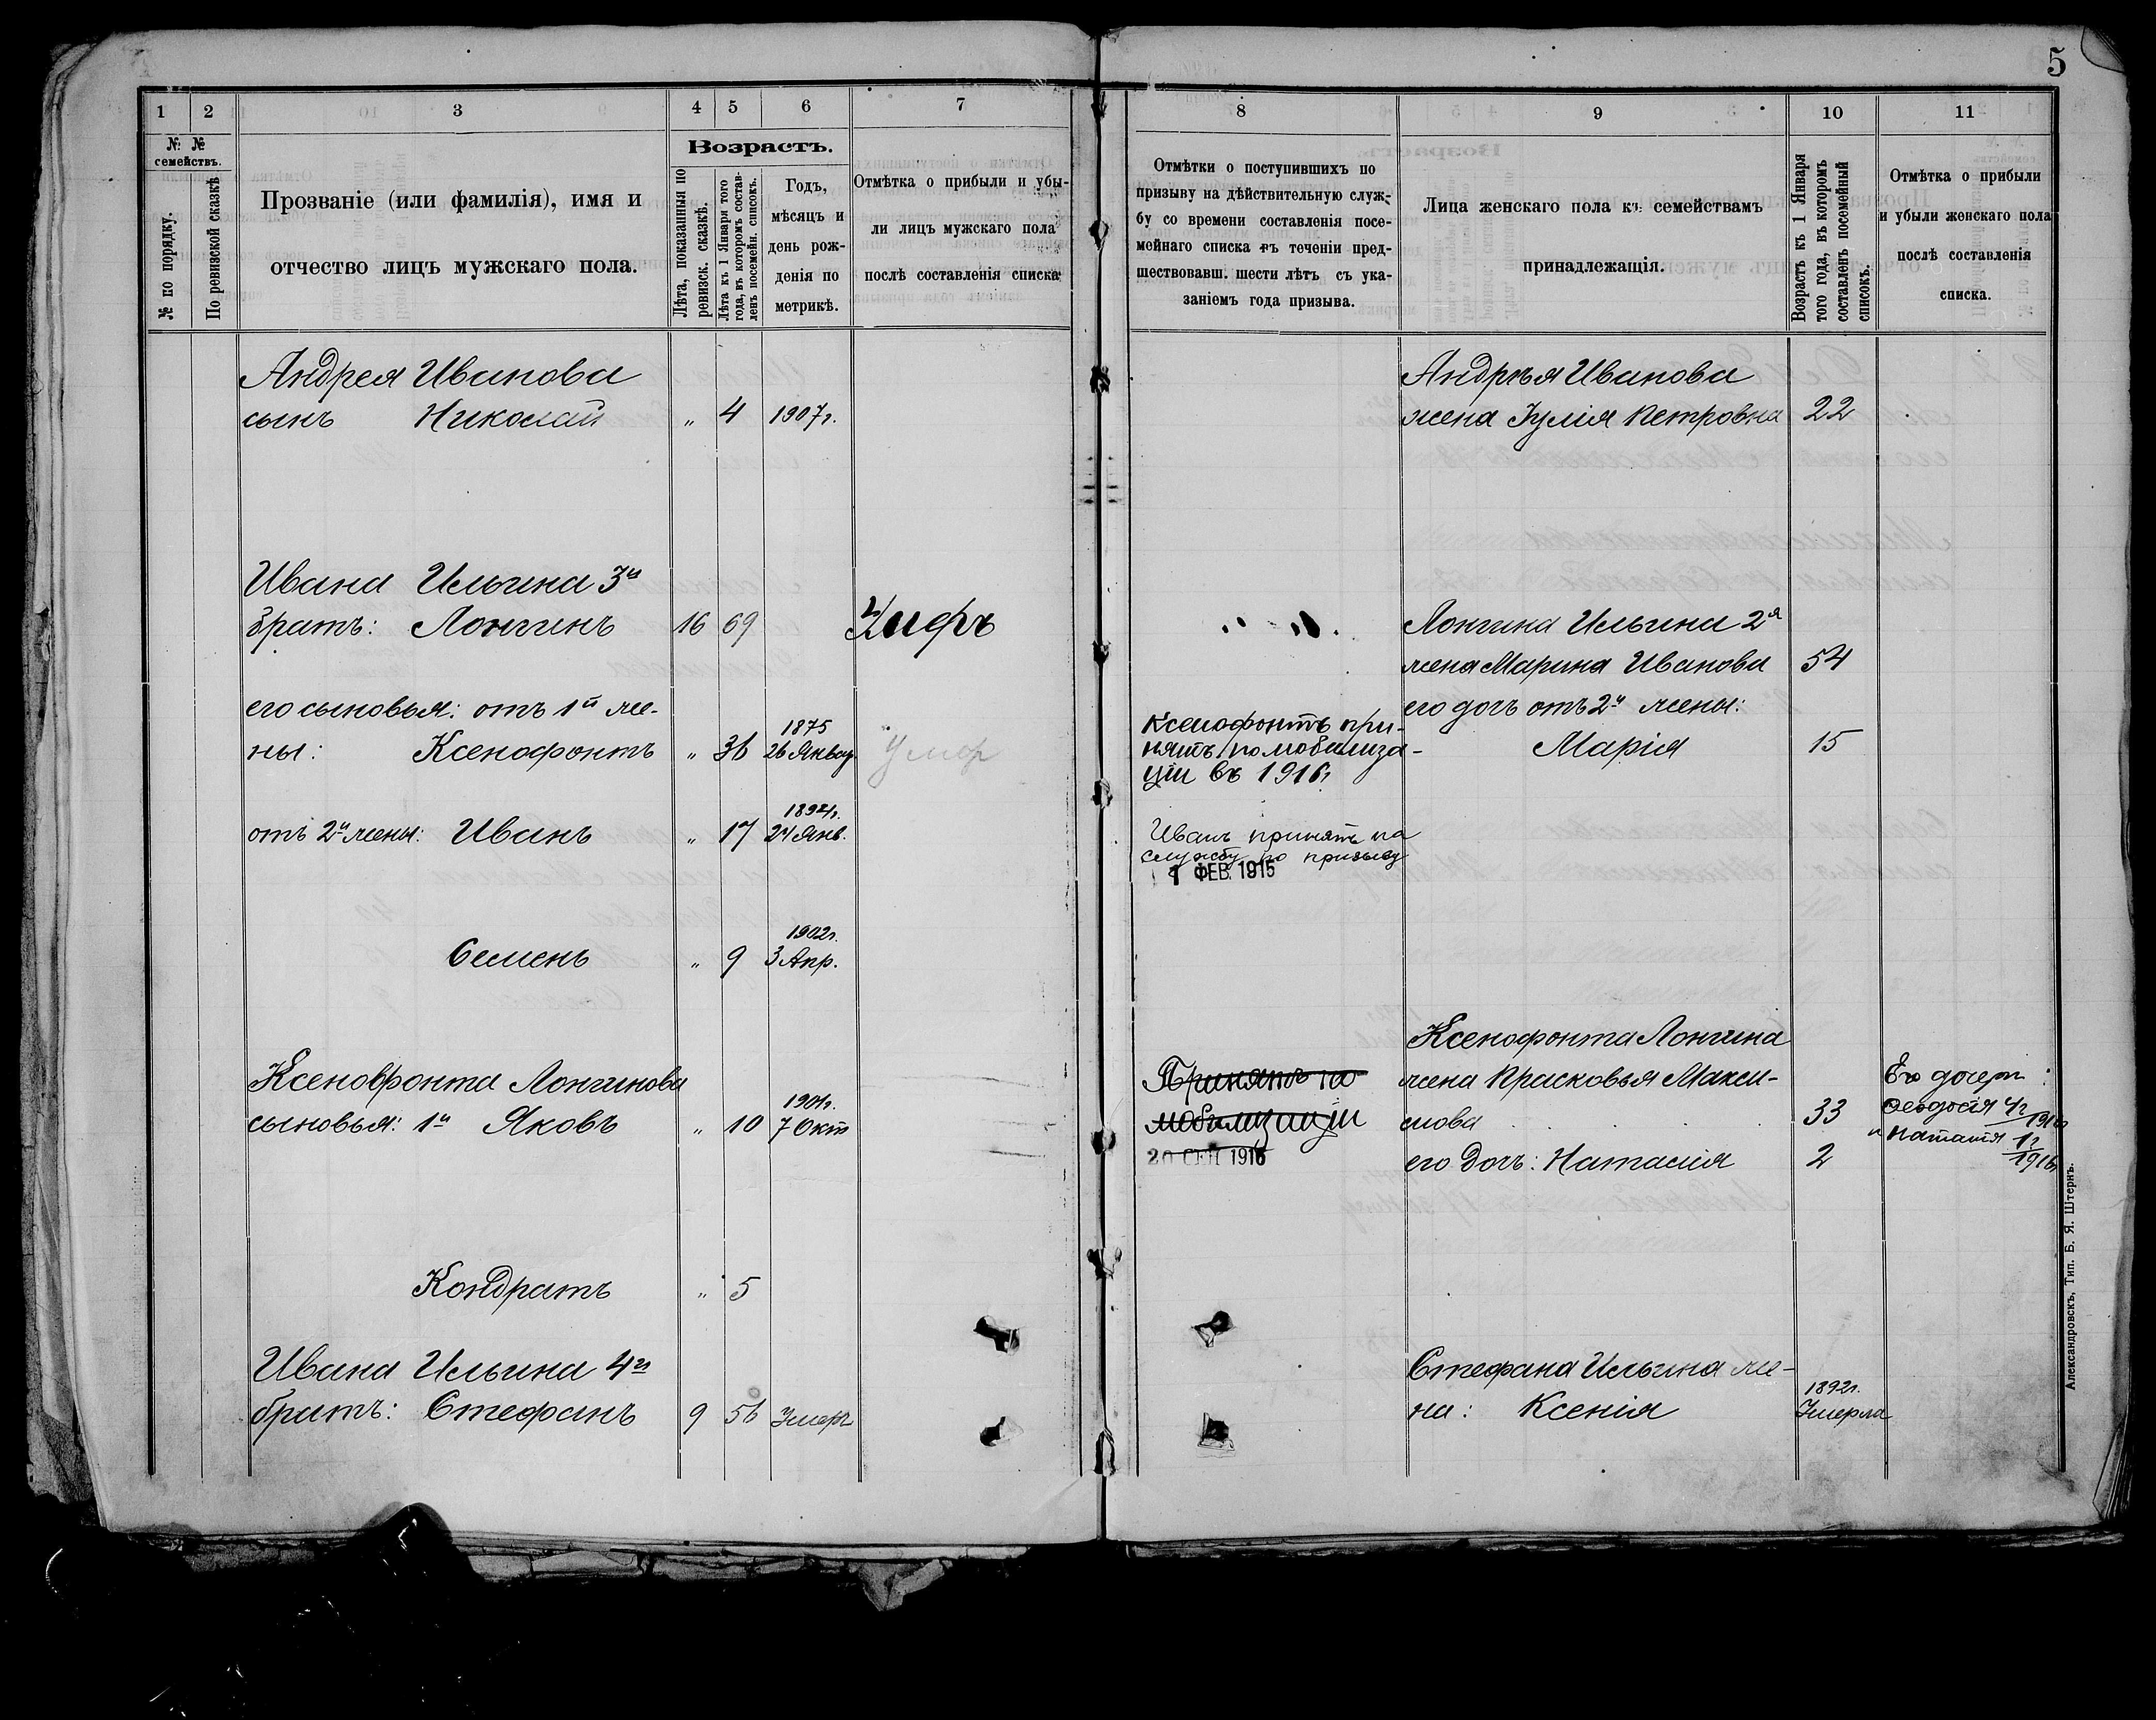 5
1 2 3 4 5 6 7
№ № семействъ.
№ по порядку.
По ревизской сказкѣ
Прозваніе (или фамилія), имя и
отчество лицъ мужскаго пола.
Возрастъ.
Лѣта, показанныя по
ревизск. сказкѣ.
Лѣта къ 1 Января того
года, въ которомъ состав-
ленъ посемейн. списокъ.
Годъ,
мѣсяцъ и
день рож-
денія по
метрикѣ.
Отмѣтка о прибыли и убы-
ли лицъ мужскаго пола
послѣ составленія списка
Андрея Иванова
сынъ Николай " 4 1907г.
Ивана Ильина 3й
братъ: Лонгинъ 16 69 Умеръ
его сыновья: отъ 1й же-
1875
ны: Ксенофонтъ " 36 26 Январ. Умер
1894г.
отъ 2й жены: Иванъ " 17 24 Янв.
1902г.
Семенъ " 9 3 Апр.
Ксенофонта Лонгинова
1901г.
сыновья: 1й Яковъ " 10 7 Окт
Кондратъ " 5
Ивана Ильина 4й
братъ: Стефанъ 9 56 Умеръ
8 9 10 11
Отмѣтки о поступившихъ по
призыву на дѣйствительную служ-
бу со времени составленія посе-
мейнаго списка въ теченіи пред-
шествовавш. шести лѣтъ съ ука-
заніемъ года призыва.
Лица женскаго пола къ семействамъ
принадлежащія.
Возрастъ къ 1 Января
того года, въ которомъ
составленъ посемейный
списокъ.
Отмѣтка о прибыли
и убыли женскаго пола
послѣ составленія
списка.
Андрѣя Иванова
жена Іулія Петровна 22
Лонгина Ильина 2я
жена Марина Иванова 54
его дочь отъ 2й жены:
Марія 15
Ксенофонтъ при-
нятъ по мобилиза-
ціи въ 1916г
Иванъ принятъ на
службу по призыву
1 ФЕВ. 1915
Ксенофонта Лонгина
жена Прасковья Макси-
мова 33
его дочь: Наталія 2
Принятъ по
мобилизаціи
20 СЕН 1916
Его дочери:
Феодосія 4г
1916
и Наталія 1г
1916
Стефана Ильина же-
1892г.
на: Ксенія Умерла
Александровскъ, Тип. Б. Я. Штернъ.